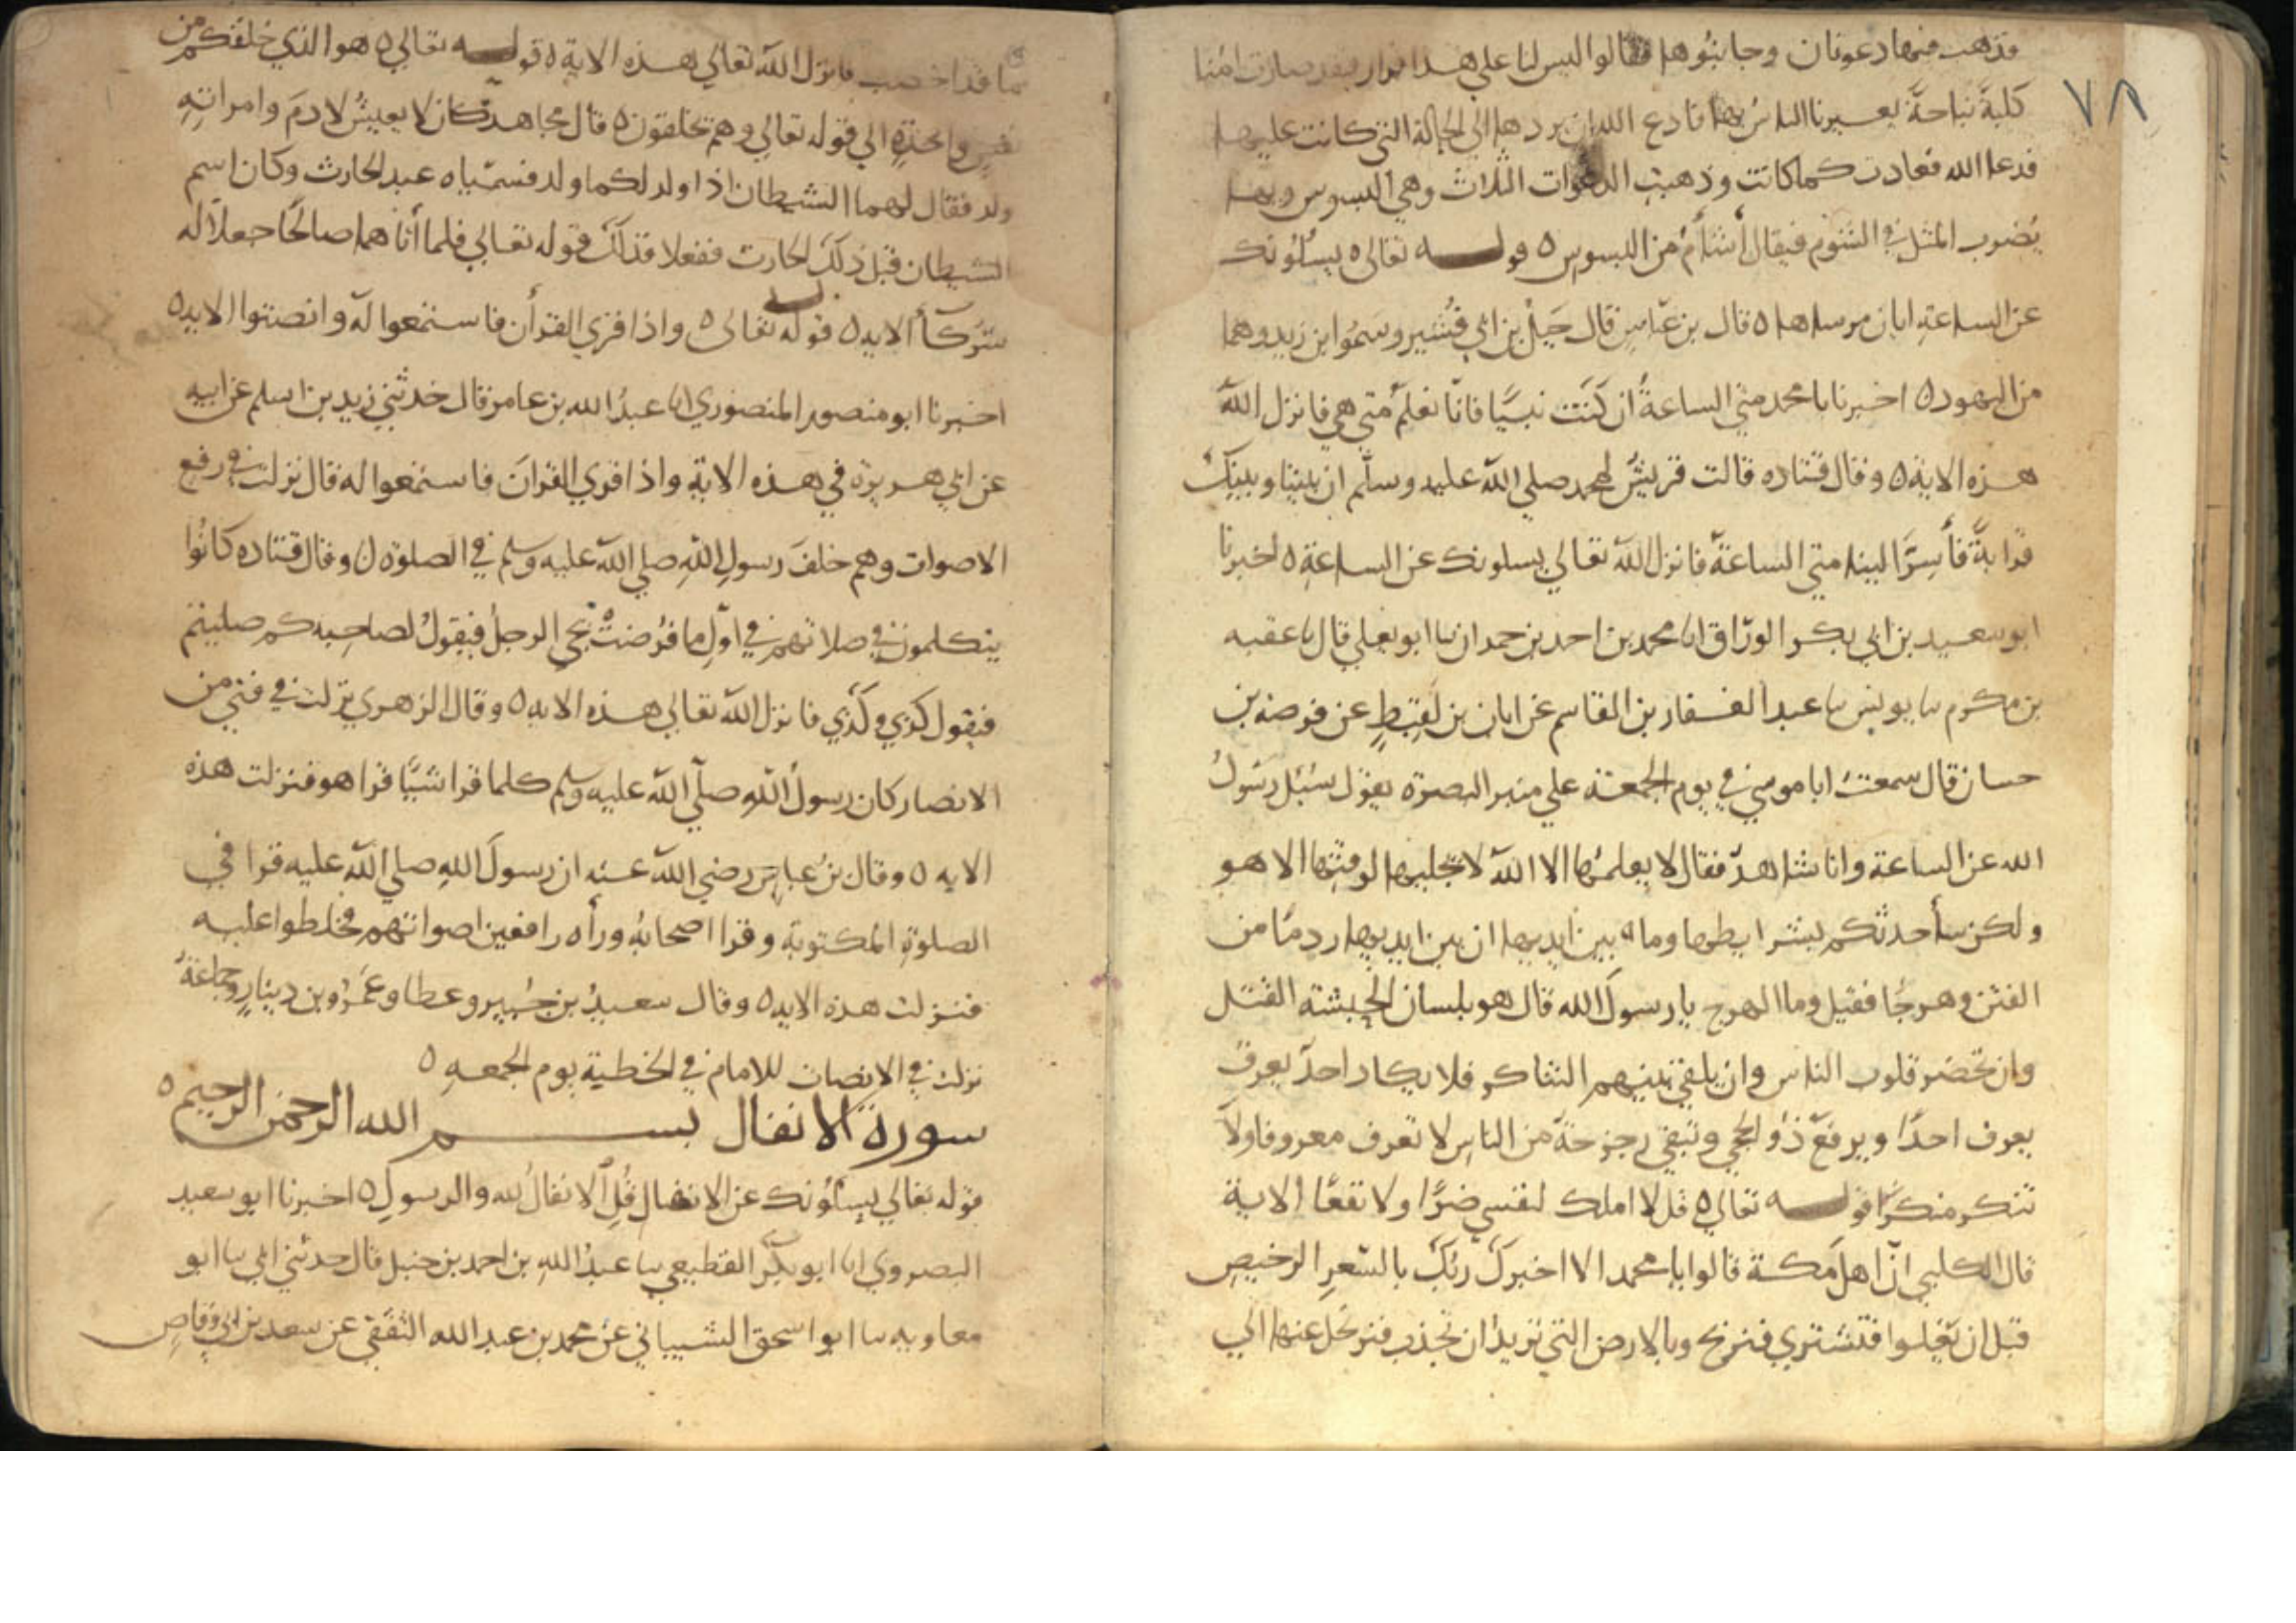 ٧٨
فذهب فيها دعوتان وجا بنوها فقالوا ليس لنا على هذا قرار فقد صارت امنا
كلبة نباحة يعيرنا الناس بها فادع الله ان يردها الى الحالة التي كانت عليها
فدعا الله فعادت كما كانت وذهبت الدعوات الثلاث وهي البسوس وبها
يضرب المثل في الشئوم فيقال أشأم من البسوس ه قوله تعالى ه يسئلونك
عن الساعة ايان مرساها ه قال بن عباس قال جبل بن ابي قشير وسموا بن زيد وهما
من اليهود ه اخبرنا يا محمد متى الساعة ان كنت نبيا فانا نعلم متى هي فانزل الله
هذه الاية ه وقال قتاده قالت قريش لمحمد صلى الله عليه وسلم ان بيننا وبينك
قرابة فأسر الينا متى الساعة فانزل الله تعالى يسلونك عن الساعة ه اخبرنا
ابو سعيد بن ابي بكر الوراق انا محمد بن احمد بن حمدان نا ابو يعلي قال نا عقبه
بن مكرم نا يونس نا عبد الغفار بن القاسم عن ابان بن لقيط عن قرصه بن
حسان قال سمعت ابا موسي في يوم الجمعة علي منبر البصرة يقول سئل رسول
الله عن الساعة وانا شاهد فقال لا يعلمها الا الله لا يجليها لوقتها الا هو
ولكن سأحدثكم بشرايطها وما بين ايديها ان بين ايديها ردما من
الفتن وهرجا فقيل وما الهرج يا رسول الله قال هو بلسان الحبشة القتل
وان تحضر قلوب الناس وان يلقي بينهم التناكر فلا يكاد احد يعرف
يعرف احدا ويرفع ذو الحجي وتبقي رجرجة من الناس لا تعرف معروفا ولا
تنكر منكرا قوله تعالي ه قل لا املك لنفسي ضرا ولا نفعا الاية
قال الكلبي ان اهل مكة قالوا يا محمد الا اخبرك ربك بالسعر الرخيص
قبل ان يغلوا فتشتري فتربح وبالارض التي تريد ان تجذب فترتحل عنها الي
ما قد اخصب فانزل الله تعالي هذه الاية ه قوله تعالي ه هو الذي خلقكم من
نفس واحدة الي قوله تعالي وهم يخلقون ه قال مجاهد كان لا يعيش لادم وامراته
ولد فقال لهما الشيطان اذا ولد لكما ولد فسمياه عبد الحارث وكان اسم
الشيطان قبل ذلك الحارث ففعلا فذلك قوله تعالي فلما أتاهما صالحا جعلا له
شركأ الايه ه قوله تعالى ه واذا قرئ القرأن فاستمعوا له وانصتوا الايه ه
اخبرنا ابو منصور المنصوري انا عبد الله بن عامر قال حدثني زيد بن اسلم عن ابيه
عن ابي هريرة في هذه الاية واذا قرئ القران فاستمعوا له قال نزلت في رفع
الاصوات وهم خلف رسول الله صلي الله عليه وسلم في الصلوة ن وقال قتاده كانوا
يتكلمون في صلاتهم في اول ما فرضت يجي الرجل فيقول لصاحبه كم صليتم
فيقول كذي وكذي فانزل الله تعالي هذه الايه ه وقال الزهري نزلت في فتي من
الانصار كان رسول الله صلي الله عليه وسلم كلما قرا شيا قرا هو فنزلت هذه
الايه ه وقال بن عباس رضي الله عنه ان رسول الله صلي الله عليه قرا في
الصلوة المكتوبة وقرا اصحابه ورأه رافعين اصواتهم فخلطوا عليه
فنزلت هذه الايه ه وقال سعيد بن جبير وعطا وعمرو بن دينار وجماعة
نزلت في الانصات للامام في الخطبة يوم الجمعه ه
سورة الانفال بسم الله الرحمن الرحيم ه
قوله تعالي يسئلونك عن الانفال قل الانفال لله والرسول ه اخبرنا ابو سعيد
البصروي انا ابو بكر القطيعي نا عبد الله بن احمد بن حنبل قال حدثني ابي نا ابو
معاويه نا ابو اسحق الشيباني عن محمد بن عبد الله الثقفي عن سعد بن ابي وقاص